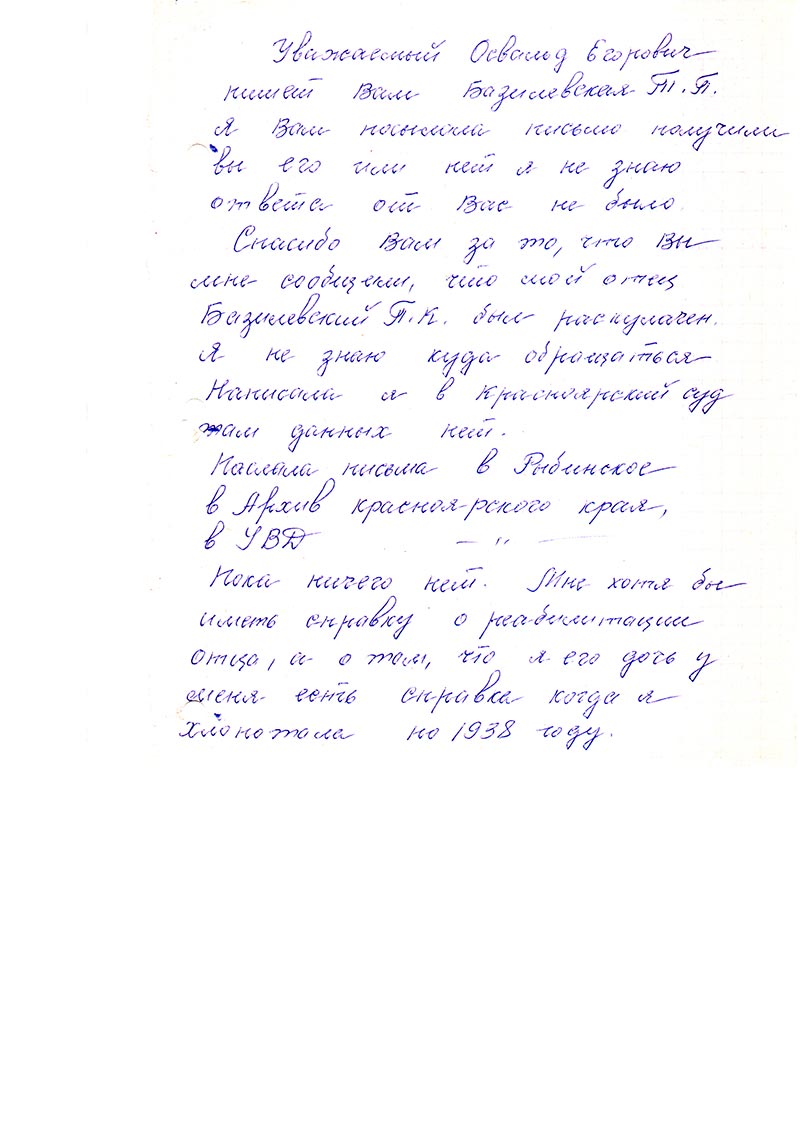 Уважаемый Освальд Егорович
пишет Вам Базилевская Т.П.
я Вам посылала письмо получили
вы его или нет я не знаю
ответа от Вас не было.
Спасибо Вам за то, что Вы
мне сообщили, что мой отец
Базилевский П.К. был раскулачен.
Я не знаю куда обращаться
Написала я в Красноярский суд
там данных нет.
Послала письма в Рыбинское
в Архив красноярского края,
в УВД — " —
Пока ничего нет. Мне хотя бы
иметь справку о реабилитации
отца, а о том, что я его дочь у
меня есть справка когда я
хлопотала по 1938 году.